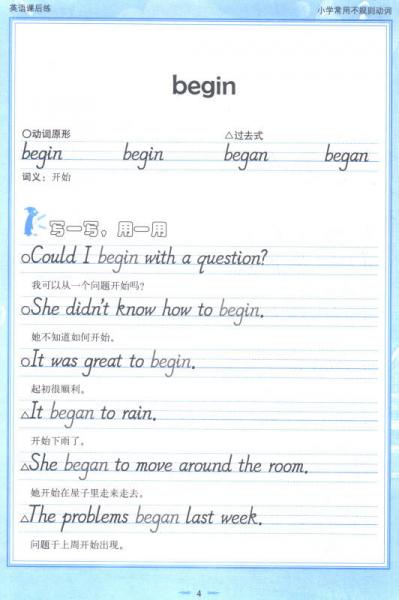 英语课后练 小学常用不规则动词
begin
○动词原形 △过去式
begin begin began began
词义：开始
写一写，用一用
○Could I begin with a question?
我可以从一个问题开始吗？
○She didn't know how to begin.
她不知道如何开始。
○It was great to begin.
起初很顺利。
△It began to rain.
开始下雨了。
△She began to move around the room.
她开始在屋子里走来走去。
△The problems began last week.
问题于上周开始出现。
4